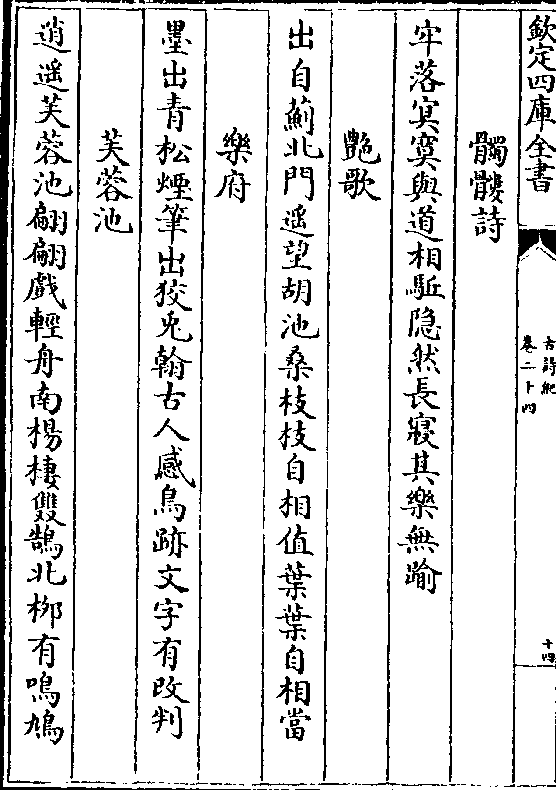 欽定四庫全書
古詩紀
卷二十四
十四
髑髏詩
牢落㝠寞與道相駈隐然長寢其樂無踰
艶歌
出自薊北門遥望胡池桑枝枝自相值葉葉自相當
樂府
墨出青松煙筆出狡兎翰古人感鳥跡文字有改判
芙蓉池
逍遥芙蓉池翩翩戲輕舟南楊棲雙鵠北栁有鳴鳩